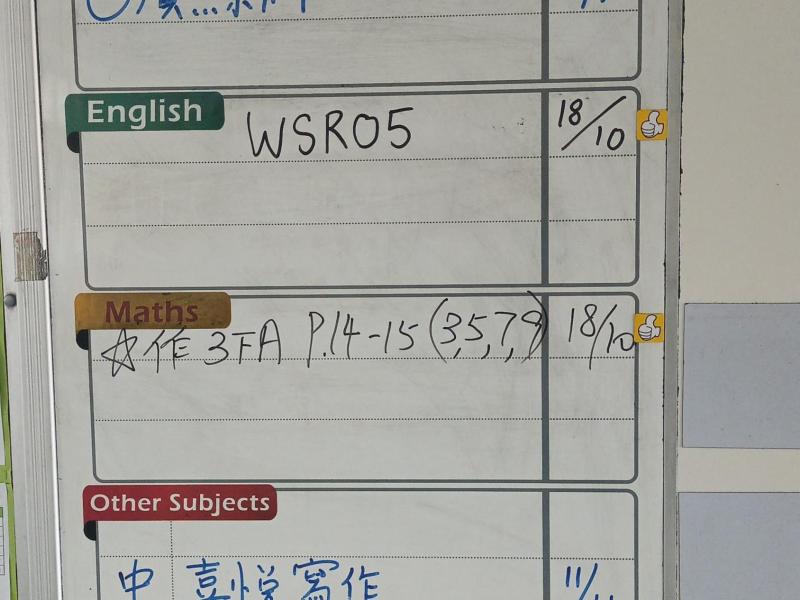 English WSR05 18/10
Maths
☆作 3下A P.14-15 (3,5,7,9) 18/10
Other Subjects
中 喜悅寫作 11/11